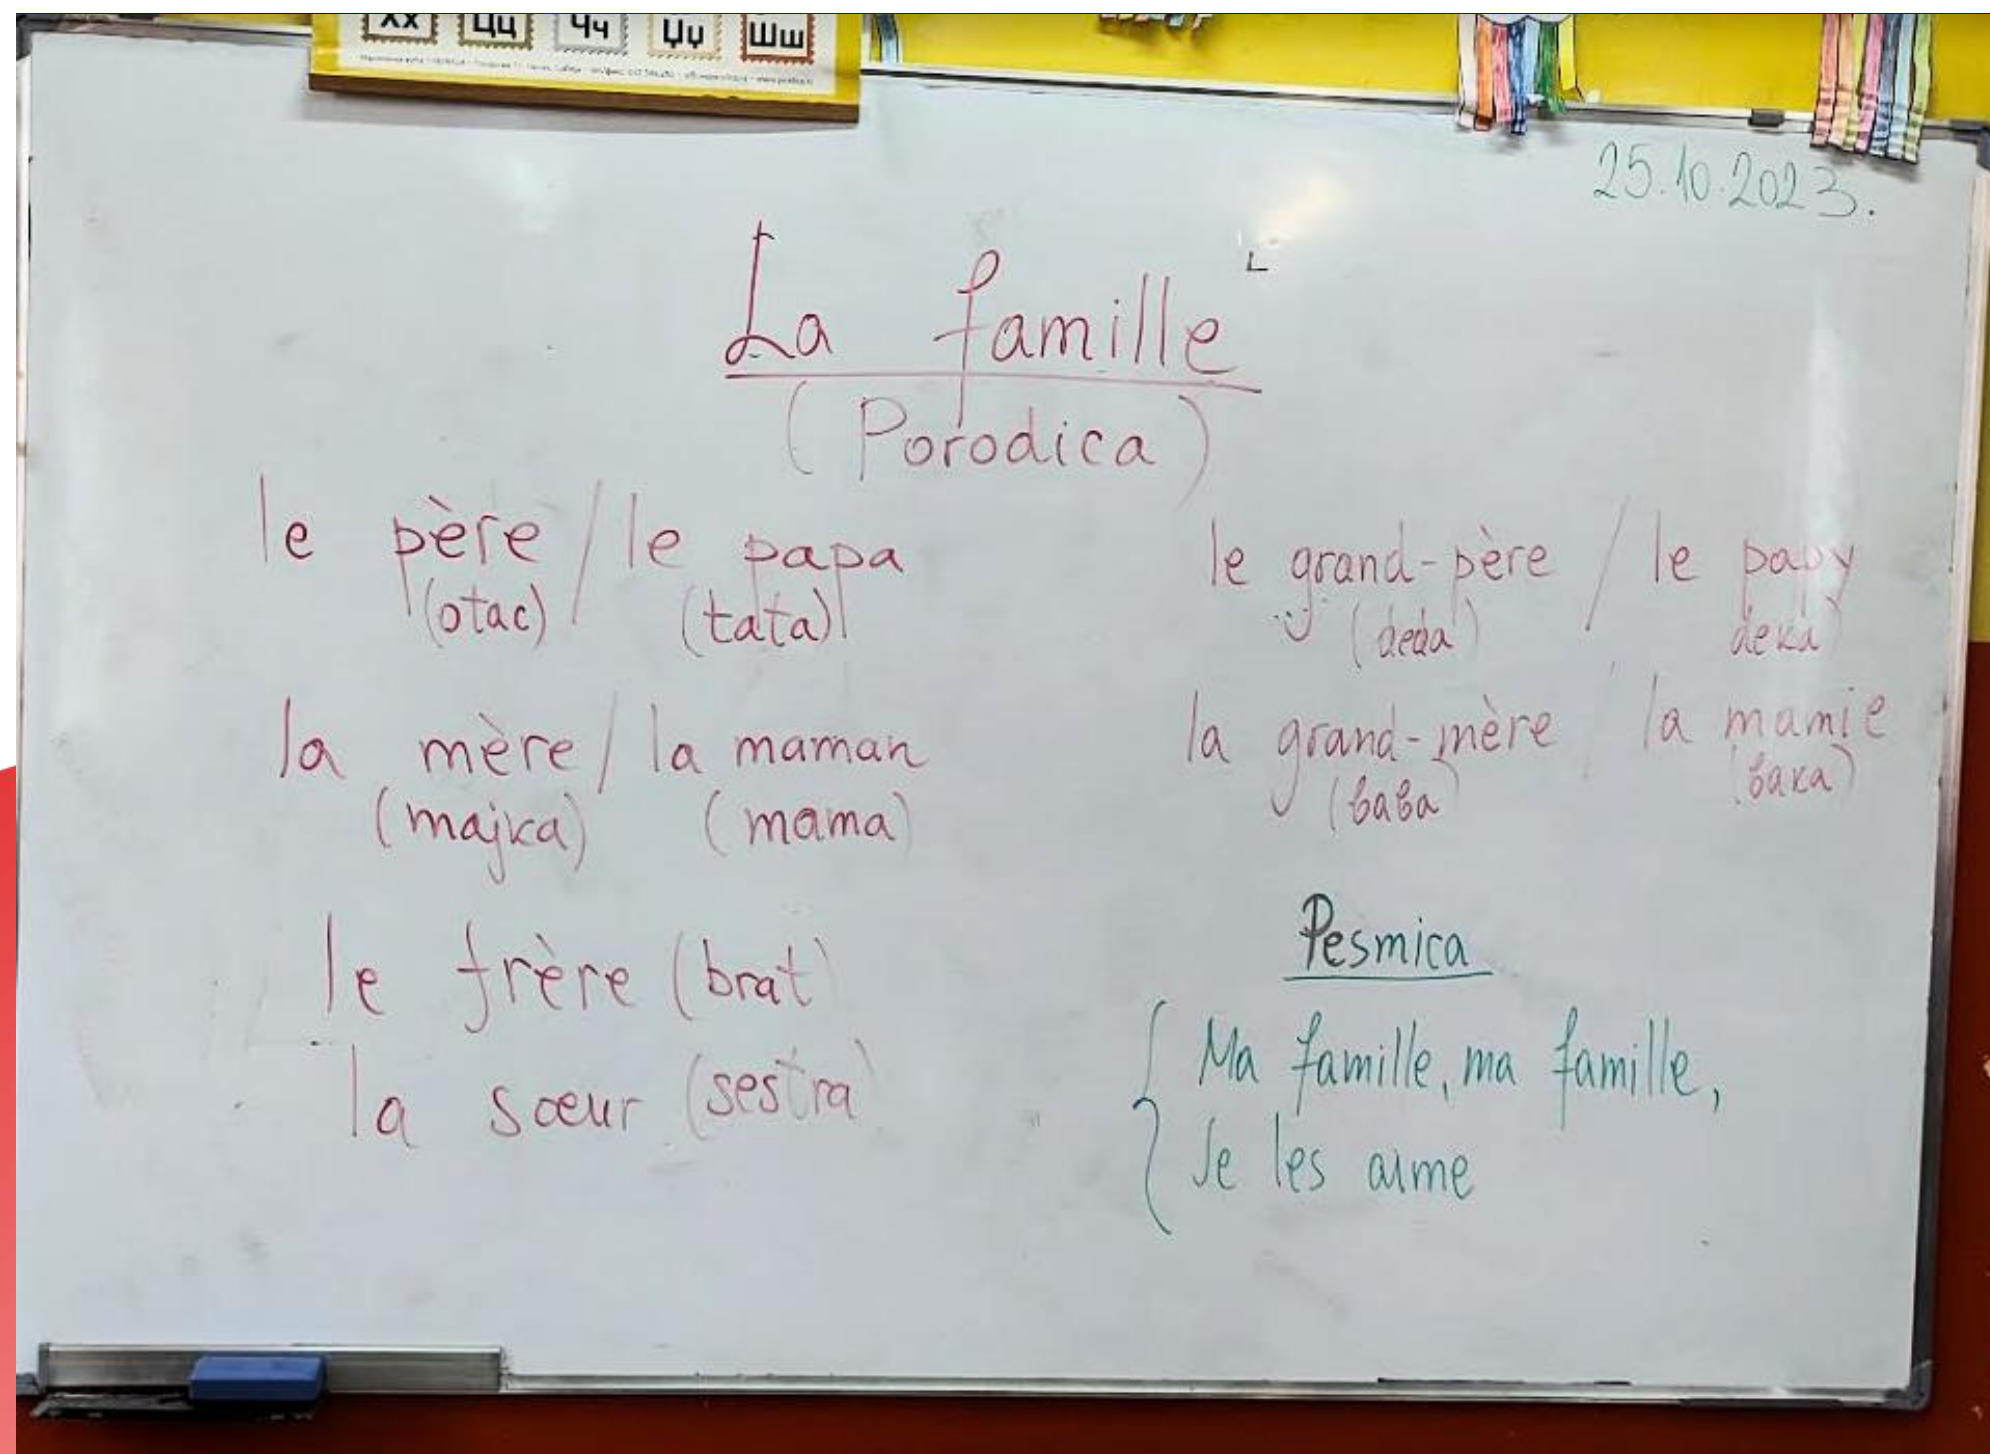 Хх Цц Чч Џџ Шш
25.10.2023.
La famille
(Porodica)
le père / le papa
(otac) (tata)
la mère / la maman
(majka) (mama)
le frère (brat)
la sœur (sestra)
le grand-père / le papy
(deda) deka)
la grand-mère / la mamie
(baba) (baka)
Pesmica
Ma famille, ma famille,
Je les aime